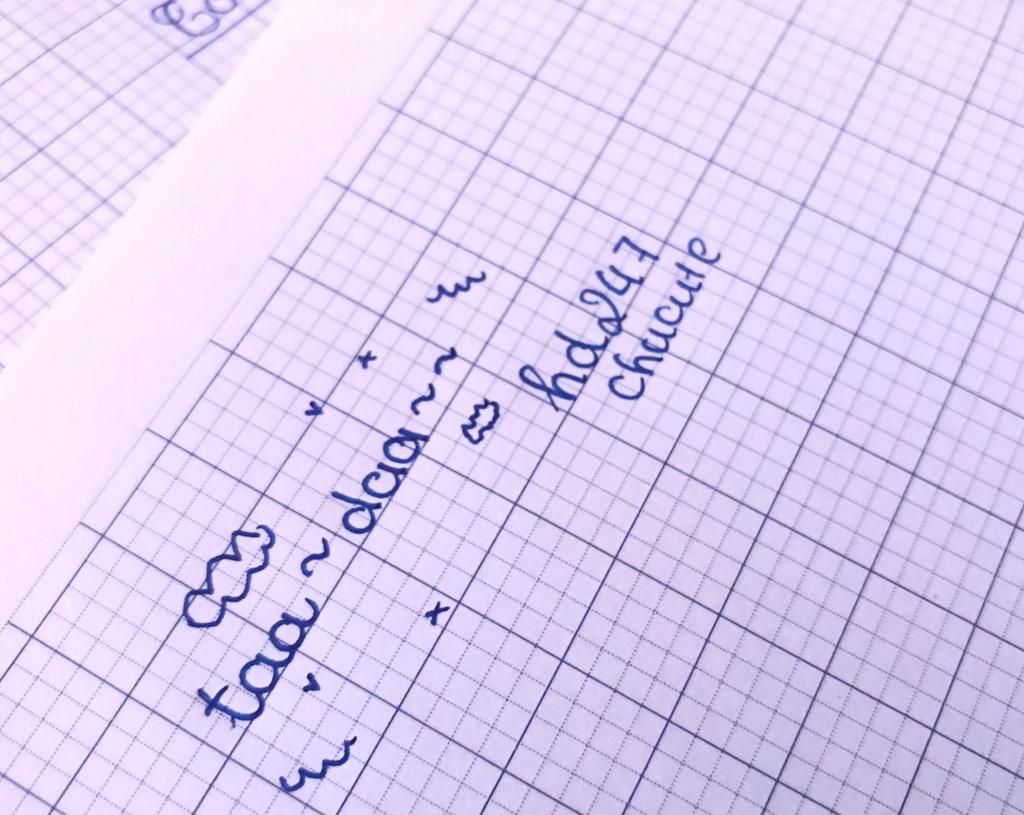 taa ~ daa ~ ~
hd247
chucute